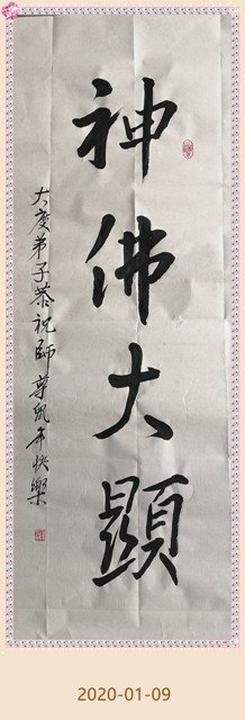 神佛大顯
大慶弟子恭祝師尊新年快樂
2020-01-09